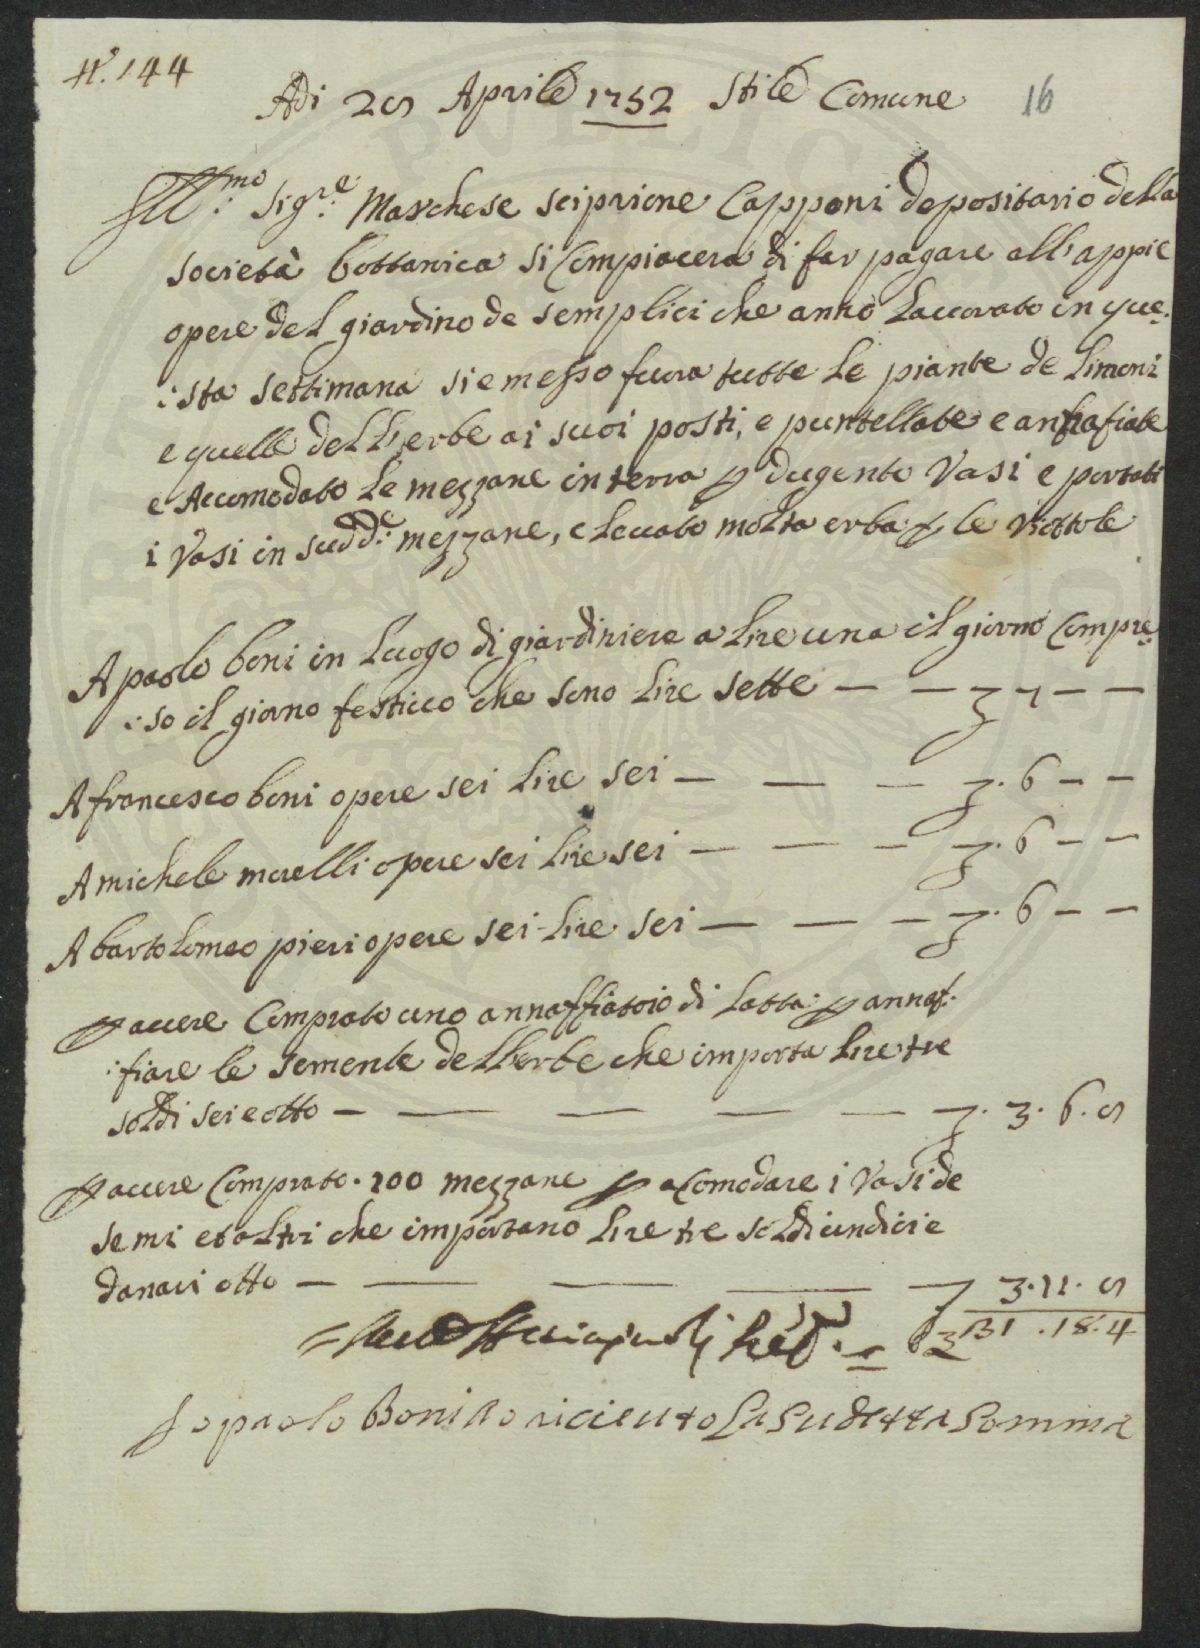 N.° 144
Adi 28 Aprile 1752 Stile Comune
16
Ill.mo Sig.re Marchese scipione Capponi depositario della
società bottanica si Compiacera di far pagare all'appie
opere del giardino de semplici che anno Lauorato in que:
:sta settimana si e messo fuora tutte le piante de limoni
e quelle dell'erbe ai suoi posti, e puntellate e
e Accomodato le mezzane in terra p dugento Vasi e portati
i Vasi in sudd.e mezzane, e leuato molta erba p le viottole
A paolo boni in luogo di giardiniere a lire una il giorno Compre:
:so il giorno festiuo che sono lire sette — — 7 — —
A francesco boni opere sei lire sei — — — . 6 — —
A michele morelli opere sei lire sei — — — . 6 — —
A bartolomeo pieri opere sei lire sei — — — . 6 — —
p auere Comprato uno annaffiatoio di latta p annaf:
:fiare le semente dell'erbe che importa lire tre
soldi sei e otto — — — — — . 3 . 6 . 8
p auere Comprato . 100 mezzane p acomodare i Vasi de
semi et altri che importano lire tre soldi undici e
danari otto — — — — — 3 . 11 . 8
31 . 18 . 4
Io paolo Boni o riceuto La Sudetta Somma